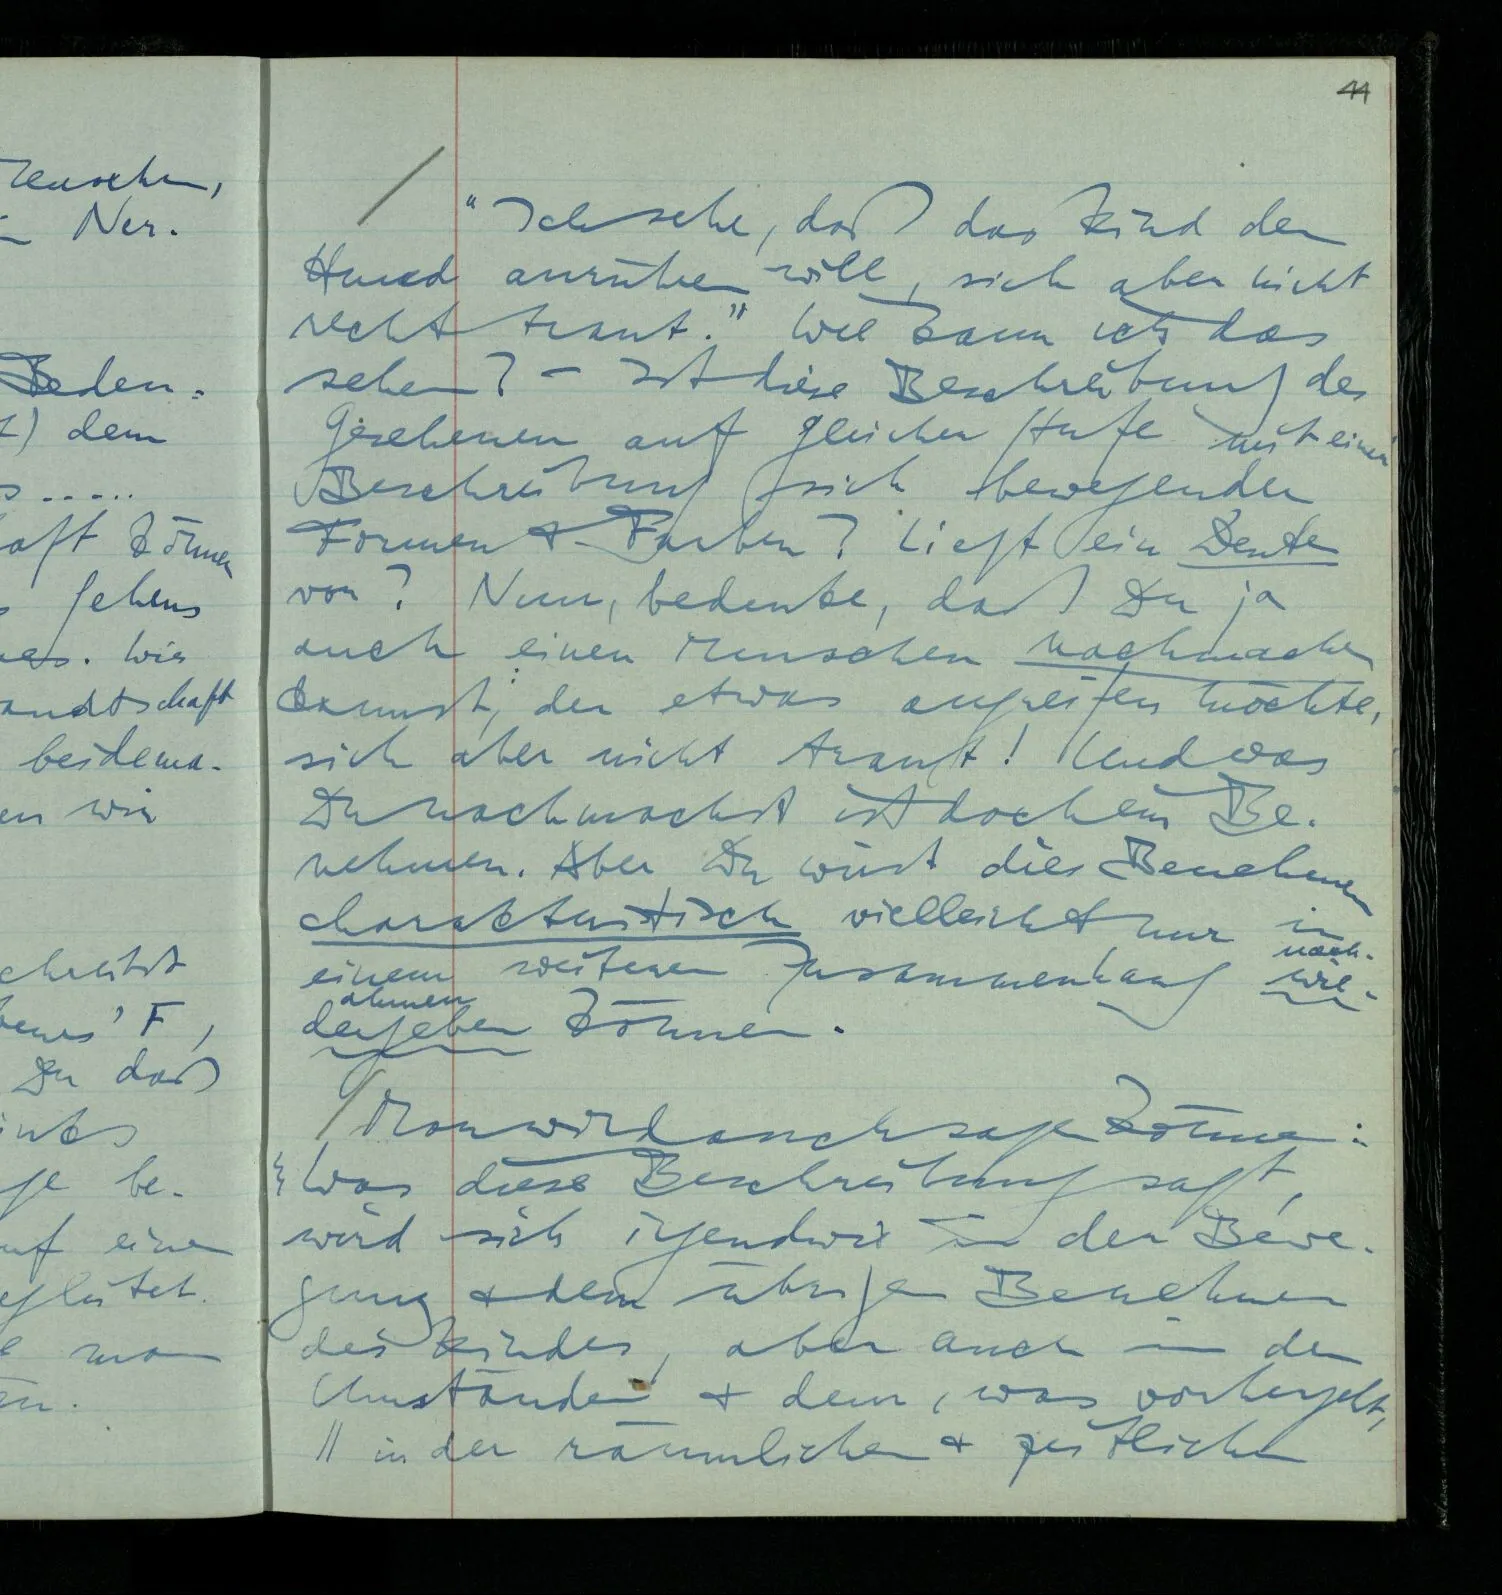 Menschen,
Ner-
Beden-
dem
.....
haft können
gehens
wir
andtschaft
beidema-
wir
F,
Du daß
links
be-
auf einen
man
44
"Ich sehe, daß das Kind den
Hund anrühren will, sich aber nicht
recht traut." Wie kann ich das
sehen? – Ist diese Beschreibung des
Gesehenen auf gleicher Stufe mit einer
Beschreibung sich bewegender
Formen & Farben? Liegt ein Deuten
vor? Nun, bedenke, daß Du ja
auch einen Menschen nachmachen
kannst, der etwas angreifen möchte,
sich aber nicht traut! Und was
Du nachmachst ist doch ein Be-
nehmen. Aber Du wirst dies Benehmen
charakteristisch vielleicht nur in
nach-
einem weiteren Zusammenhang wie-
ahmen
dergeben können.
Man wird auch sagen können:
Was diese Beschreibung sagt,
wird sich irgendwie in der Bewe-
gung & dem übrigen Benehmen
des Kindes, aber auch in den
Umständen & dem, was vorhergeht,
// in der räumlichen & zeitlichen